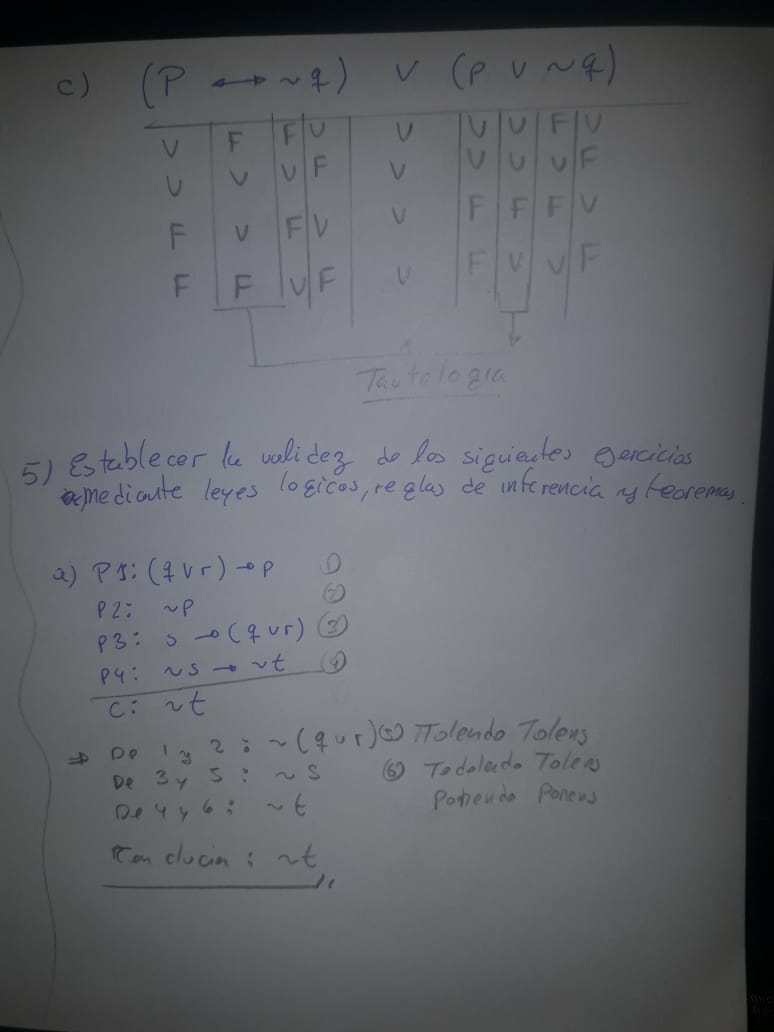 c) (P ↔ ~q) v (p v ~q)
V F F V V V V F V
V V V F V V V V F
F V F V V F F F V
F F V F V F V V F
Tautologia
5) Establecer la validez de los siguientes ejercicios
mediante leyes logicos, reglas de inferencia y teoremas.
a) P1: (q v r) → p ①
P2: ~P ②
P3: s → (q v r) ③
P4: ~s → ~t ④
C: ~t
⇒ De 1 y 2 : ~(q v r) ⑤ Tolendo Tolens
De 3 y 5 : ~S ⑥ Tolens
De 4 y 6 : ~t Ponendo Ponens
: ~t